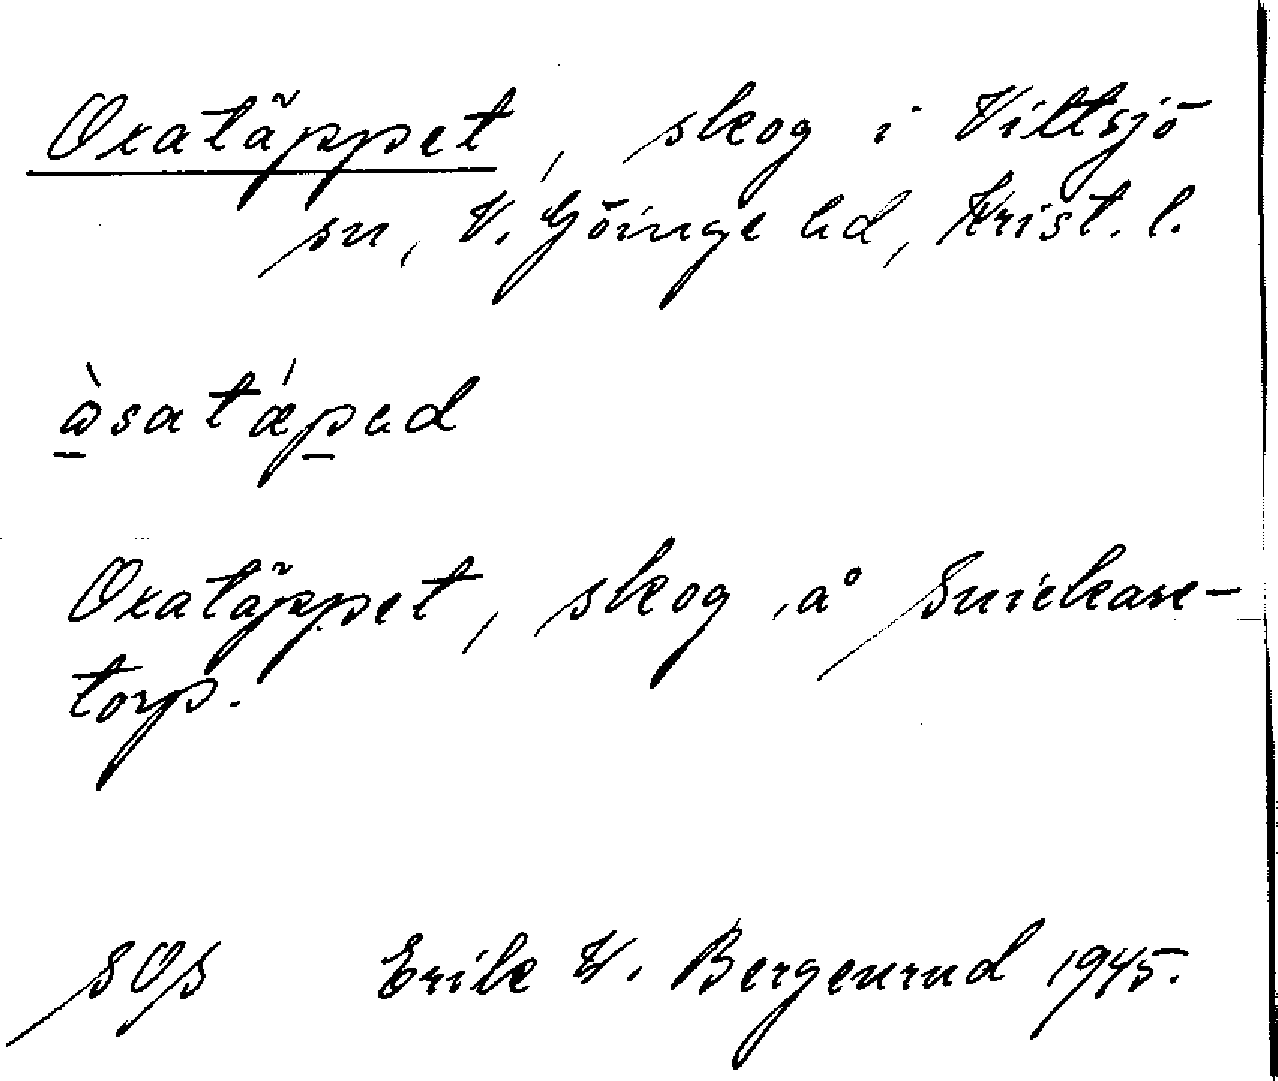 Oxatäppet, skog i Vittsjö
sn, V. Göinge hd, Krist. l.
àsatǽpəd
Oxatäppet, skog å Snickare-
torp.
SOS Erik W. Bergenrud 1945.